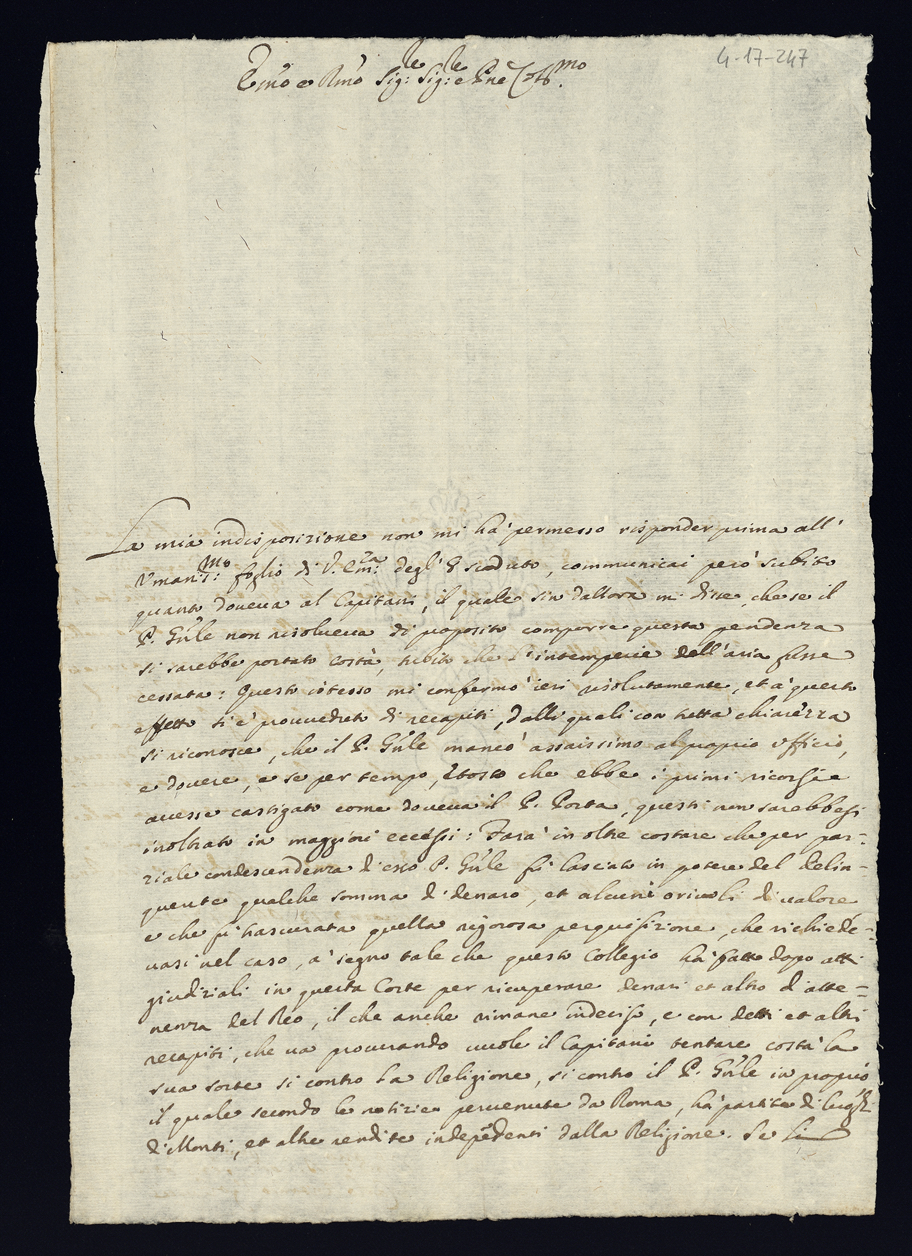 4-17-247
Em̃o e Rmõ Sig:re Sig:re e Pne Col.mo
La mia indisposizione non mi hà permesso risponder prima all'
Vman.mo foglio di V. Em.za degl' 8 scaduto, communicai però subito
quanto doueua al Capitani, il quale sin dallora mi disse, che se il
P. Gñle non risolueua di proposito comporre questa pendenza
si sarebbe portato costà, subito che l'intemperie dell'aria fusse
cessata: Questo istesso mi confermò ieri risolutamente, et à questo
effetto si è proueduto di recapiti, dalli quali con tutta chiarezza
si riconosce, che il P. Gñle mancò assaissimo al proprio officio,
e douere, e se per tempo, tosto che ebbe i primi ricorsi
auesse castigato come doueua il P. Porta, questi non sarebbesi
inoltrato in maggiori eccessi: Farà in oltre costare che per par=
ziale condescendenza d'esso P. Gñle fù lasciato in potere del Delin=
quente qualche somma di denaro, et alcuni oriuoli di ualore
e che fù trascurata quella rigorosa perquisizione, che richiede=
uasi nel caso, à segno tale che questo Collegio hà fatto dopo atti
giudiziali in questa Corte per ricuperare denari et altro d'atte=
nenza del Reo, il che anche rimane indeciso, e con detti et altri
recapiti, che uà procurando uuole il Capitani tentare costà la
sua sorte si contro la Religione, si contro il P. Gñle in proprio
il quale secondo le notizie peruenute da Roma, hà partite di
di Monti, et altre rendite indepẽdenti dalla Religione. Se